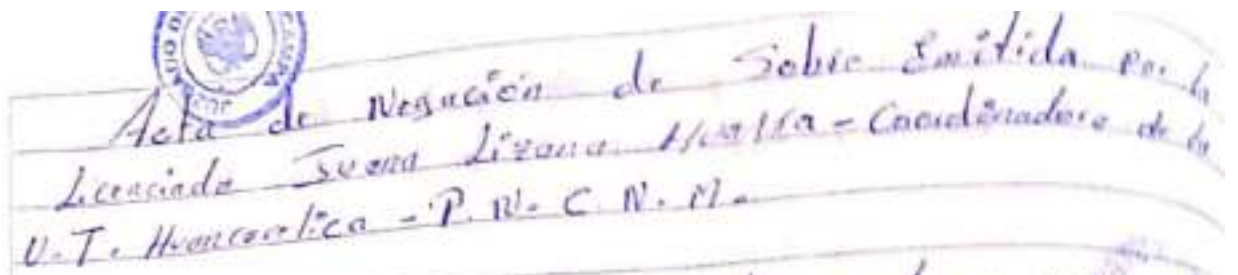 Acta de Negación de Sobre Emitida Por la
Licenciada Juana Lizana - Coordinadora de la
U.T. Huancavelica - P. N. C. N. M.